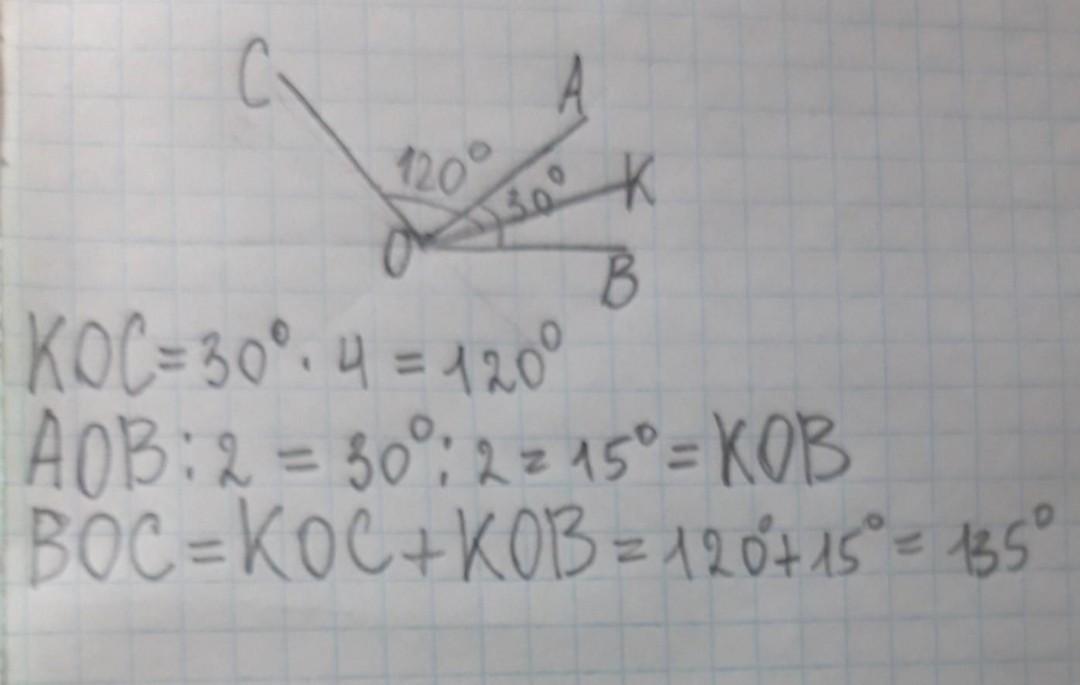 C
A
120°
30°
K
O
B
KOC=30°·4=120°
AOB:2=30°:2=15°=KOB
BOC=KOC+KOB=120°+15°=135°